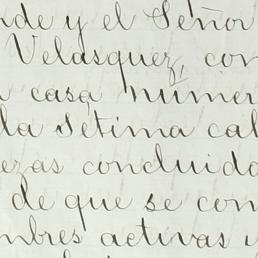 nde y el Señor
Velasquez, con
casa numer
la Setima cal
ezas concluida
de que se con
mbres activas y